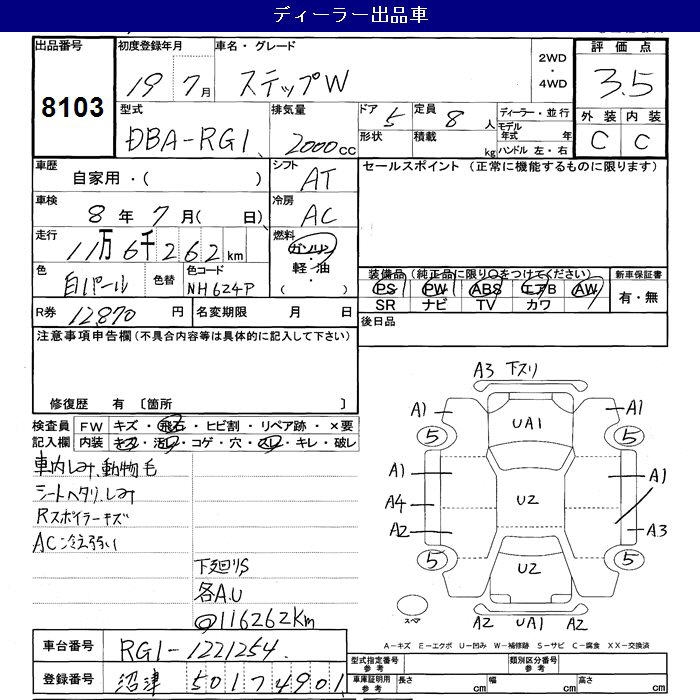 ディーラー出品車
出品番号 初度登録年月 車名・グレード 2WD・4WD 評価点
8103 19 7月 ステップW 3.5
型式 排気量 ドア 5 定員 8人 ディーラー・並行 外装 内装
DBA-RG1 2000cc 形状 積載 kg モデル年式 年 C C
ハンドル 左・右
車歴 シフト セールスポイント (正常に機能するものに限ります)
自家用・( ) AT
車検 冷房
8年 7月( 日) AC
走行 燃料
11万6千262km ガソリン・軽油 ( )
色 色替 色コード 装備品(純正品に限り○をつけてください) 新車保証書
白パール NH624P PS PW ABS エアB AW 有・無
SR ナビ TV カワ
R券 12870円 名変期限 月 日 後日品
注意事項申告欄(不具合内容等は具体的に記入して下さい)
修復歴 有 〔箇所 〕
検査員記入欄 FW キズ・飛石・ヒビ割・リペア跡・×要
内装 キズ・汚レ・コゲ・穴・スレ・キレ・破レ
車内しみ、動物毛
シートヘタリ、しみ
Rスポイラーキズ
AC冷え弱い
下廻りS
各A.U
@116262Km
A3 下スリ
A1 UA1 A1
5 5
A1 A1
A4 U2
A2 A3
5 U2 5
スペア A2 UA1 A2
A-キズ E-エクボ U-凹み W-補修跡 S-サビ C-腐食 XX-交換済
車台番号 RG1-1221254
型式指定番号 参考 類別区分番号 参考
登録番号 沼津 501 7 4901
車庫証明用 参考 長さ cm 幅 cm 高さ cm